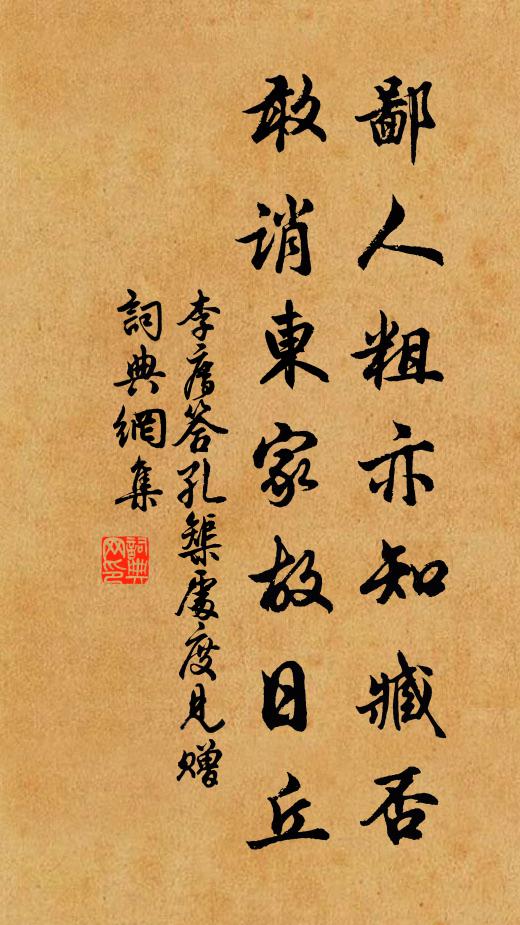 鄙人粗亦知臧否
敢誚東家故日丘
李廌答孔榘處度見贈
詞典網集
詞典网印